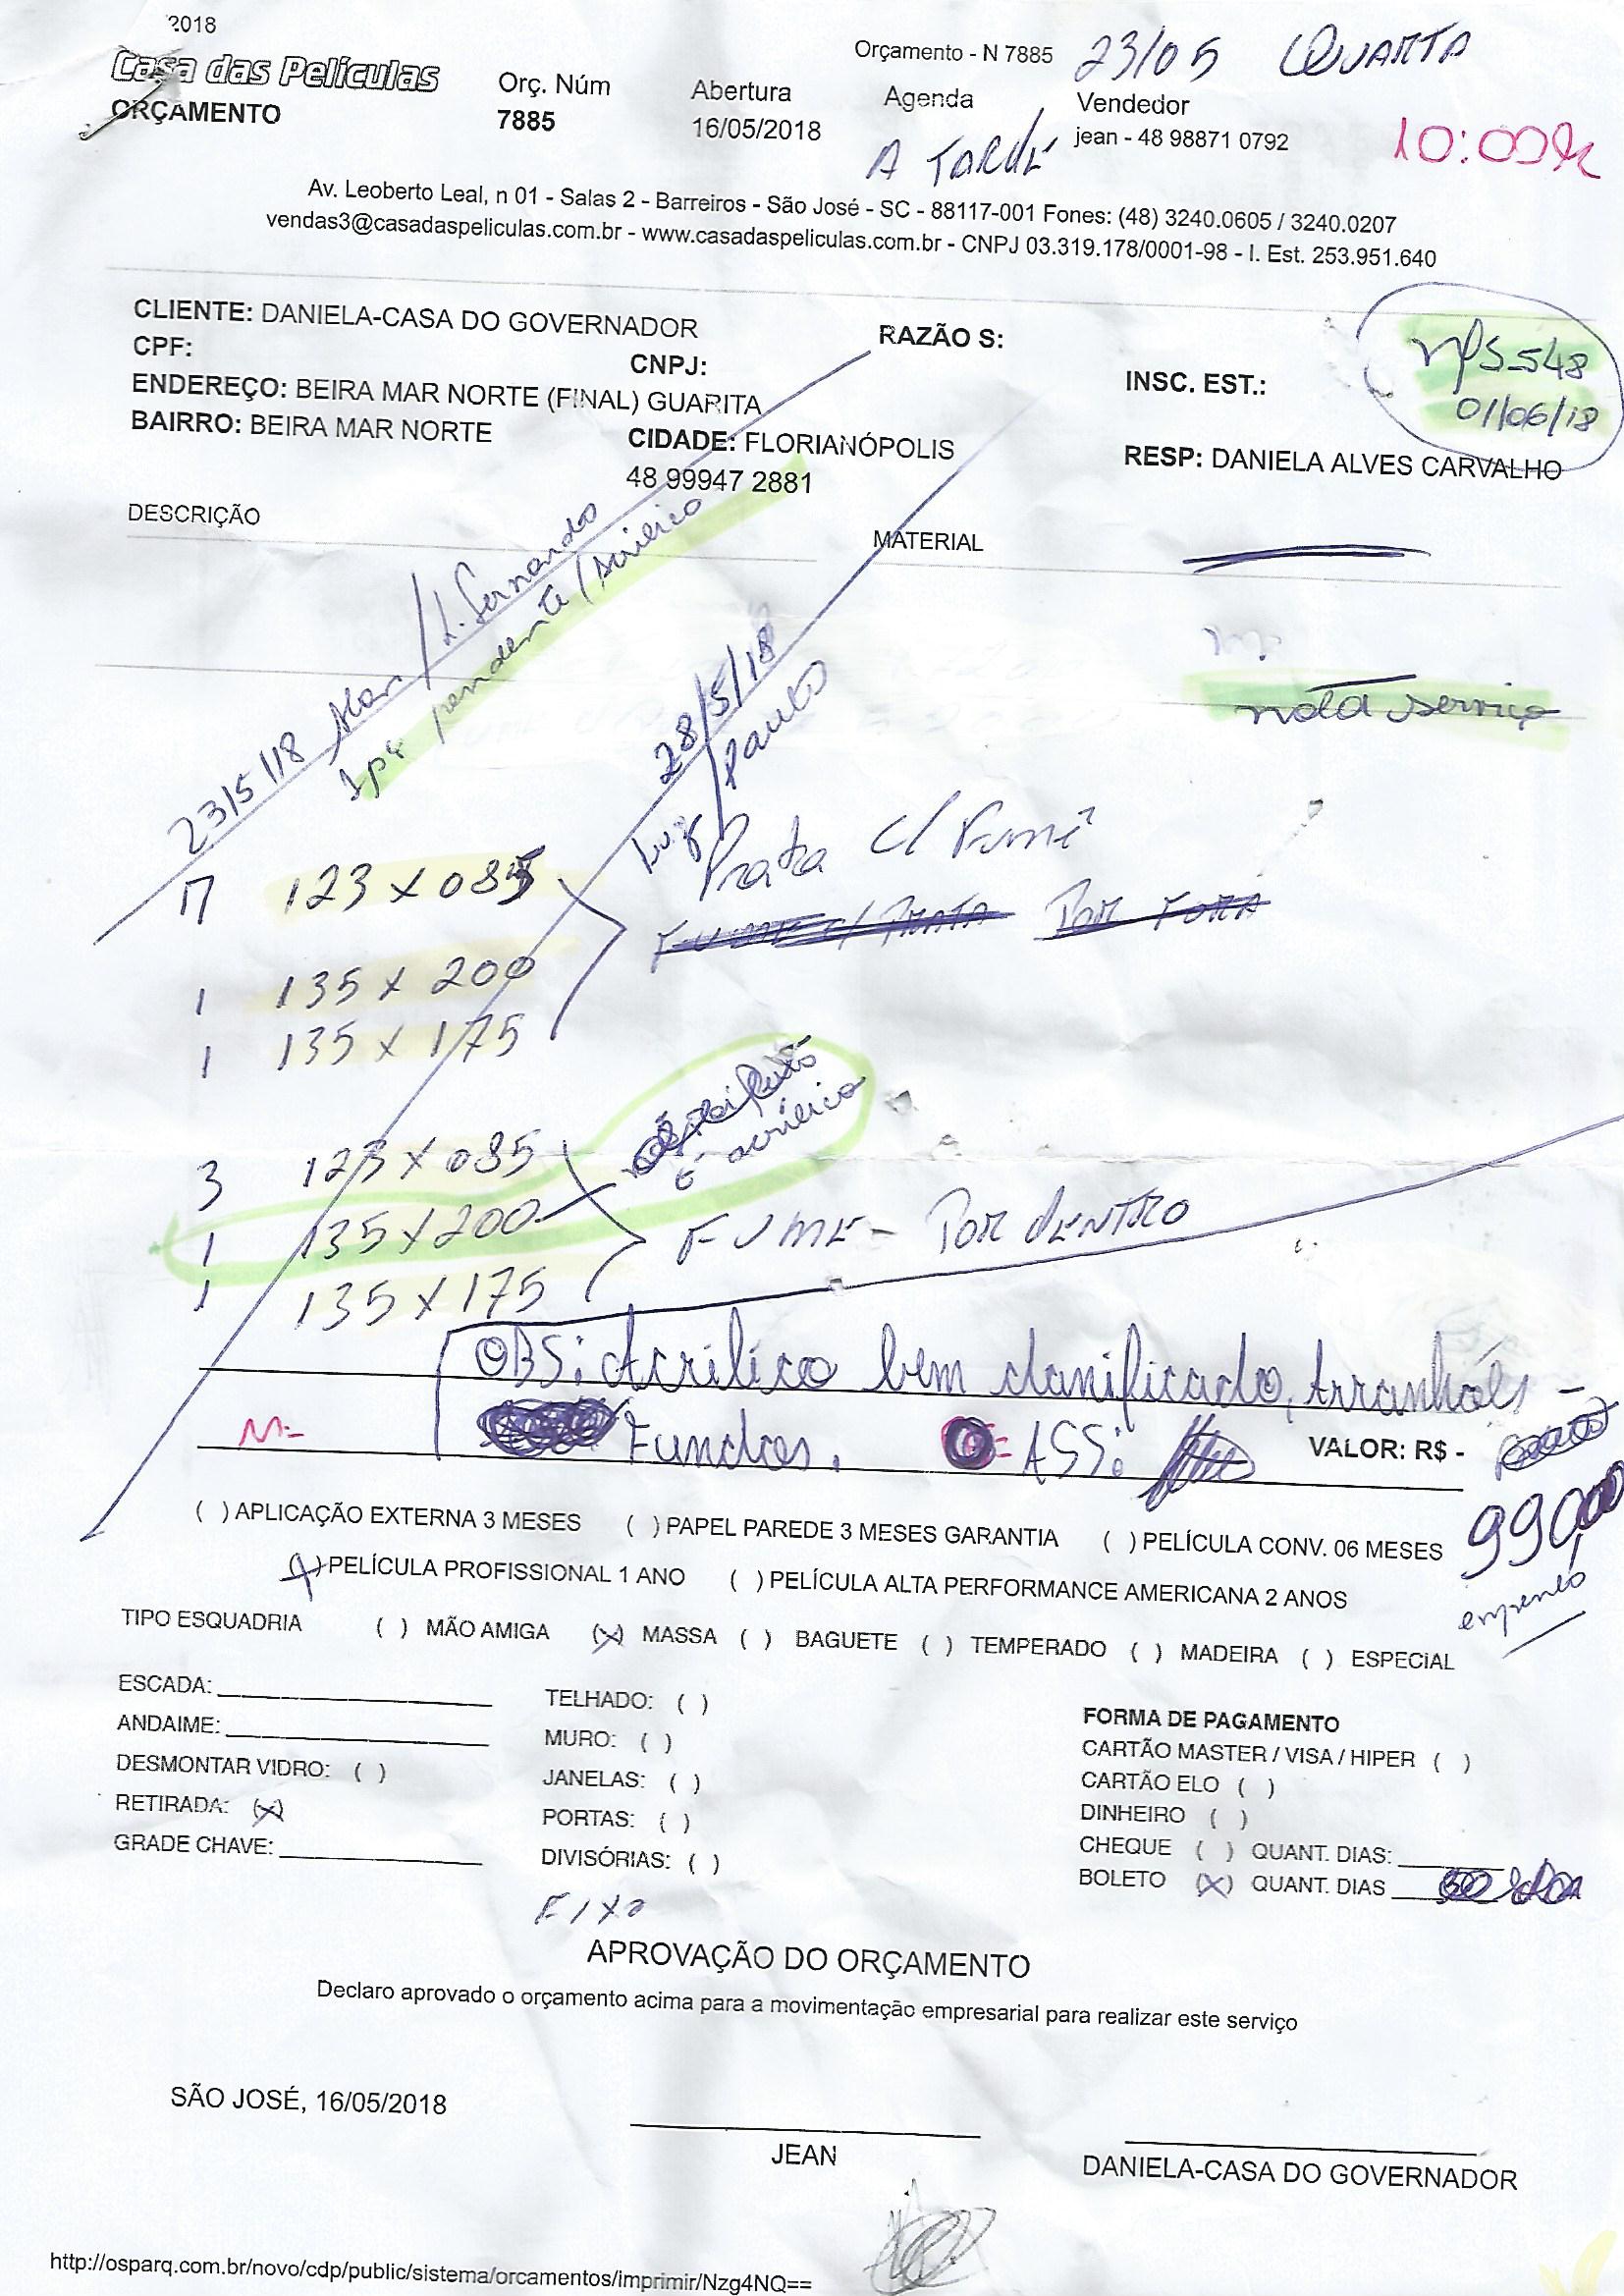 2018
Orçamento - N 7885 23/05 QUARTA
Casa das Películas
ORÇAMENTO
Orç. Núm
7885
Abertura
16/05/2018
Agenda
A TARDE
Vendedor
jean - 48 98871 0792
10:00h
Av. Leoberto Leal, n 01 - Salas 2 - Barreiros - São José - SC - 88117-001 Fones: (48) 3240.0605 / 3240.0207
vendas3@casadaspeliculas.com.br - www.casadaspeliculas.com.br - CNPJ 03.319.178/0001-98 - I. Est. 253.951.640
CLIENTE: DANIELA-CASA DO GOVERNADOR
RAZÃO S:
CPF:
CNPJ:
INSC. EST.:
548
01/06/18
ENDEREÇO: BEIRA MAR NORTE (FINAL) GUARITA
BAIRRO: BEIRA MAR NORTE
CIDADE: FLORIANÓPOLIS
RESP: DANIELA ALVES CARVALHO
48 99947 2881
DESCRIÇÃO
MATERIAL
23/5/18 / L. Fernando
1 pç pendente / acrilico
28/5/18
Luiz / Paulo
nota serviço
Prata c/ Fumê
17 123 x 085
FUME c/ PRATA POR FORA
1 135 x 200
1 135 x 175
é acrílico
3 123 x 085
1 135 x 200
FUME - POR DENTRO
1 135 x 175
OBS: Acrílico bem danificado, Arranhões -
Fundos. ASS:
VALOR: R$ -
990,00
empenho
( ) APLICAÇÃO EXTERNA 3 MESES ( ) PAPEL PAREDE 3 MESES GARANTIA ( ) PELÍCULA CONV. 06 MESES
(X) PELÍCULA PROFISSIONAL 1 ANO ( ) PELÍCULA ALTA PERFORMANCE AMERICANA 2 ANOS
TIPO ESQUADRIA ( ) MÃO AMIGA (X) MASSA ( ) BAGUETE ( ) TEMPERADO ( ) MADEIRA ( ) ESPECIAL
ESCADA:
ANDAIME:
DESMONTAR VIDRO: ( )
RETIRADA: (X)
GRADE CHAVE:
TELHADO: ( )
MURO: ( )
JANELAS: ( )
PORTAS: ( )
DIVISÓRIAS: ( )
FIXO
FORMA DE PAGAMENTO
CARTÃO MASTER / VISA / HIPER ( )
CARTÃO ELO ( )
DINHEIRO ( )
CHEQUE ( ) QUANT. DIAS:
BOLETO (X) QUANT. DIAS
APROVAÇÃO DO ORÇAMENTO
Declaro aprovado o orçamento acima para a movimentação empresarial para realizar este serviço
SÃO JOSÉ, 16/05/2018
JEAN
DANIELA-CASA DO GOVERNADOR
http://osparq.com.br/novo/cdp/public/sistema/orcamentos/imprimir/Nzg4NQ==